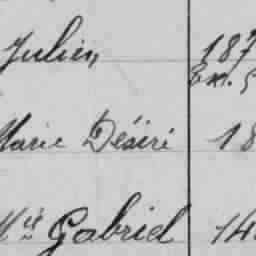 Julien, 187
Ex. 5
Marie Désiré 18
Gabriel 14